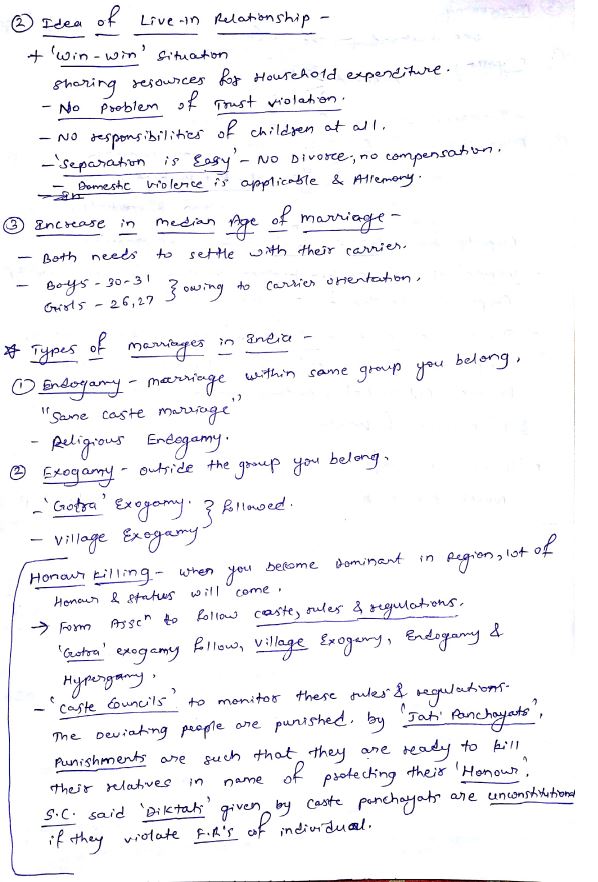 ② Idea of Live-in Relationship -
+ 'Win-Win' Situation
sharing resources for Household expenditure.
- No Problem of Trust violation.
- NO responsibilities of children at all.
- 'Separation is Easy' - NO Divorce, no compensation.
- Domestic violence is applicable & Allemony.
③ Increase in median Age of marriage -
- Both needs to settle with their carrier.
- Boys - 30-31 } owing to carrier orientation.
Girls - 26,27
* Types of marriages in India -
① Endogamy - marriage within same group you belong.
"Same caste marriage"
- Religious Endogamy.
② Exogamy - outside the group you belong.
- 'Gotra' Exogamy. } followed.
- Village Exogamy
Honour Killing - when you become dominant in Region, lot of
Honour & status will come.
→ Form Asscn to follow caste, rules & regulations.
'Gotra' exogamy follow, Village Exogamy, Endogamy &
Hypergamy.
- 'Caste Councils' to monitor these rules & regulations.
The Deviating people are punished. by 'Jati Panchayats'.
Punishments are such that they are ready to kill
their relatives in name of protecting their 'Honour'.
S.C. said 'Diktats' given by caste panchayats are unconstitutional
if they violate F.R's of individual.